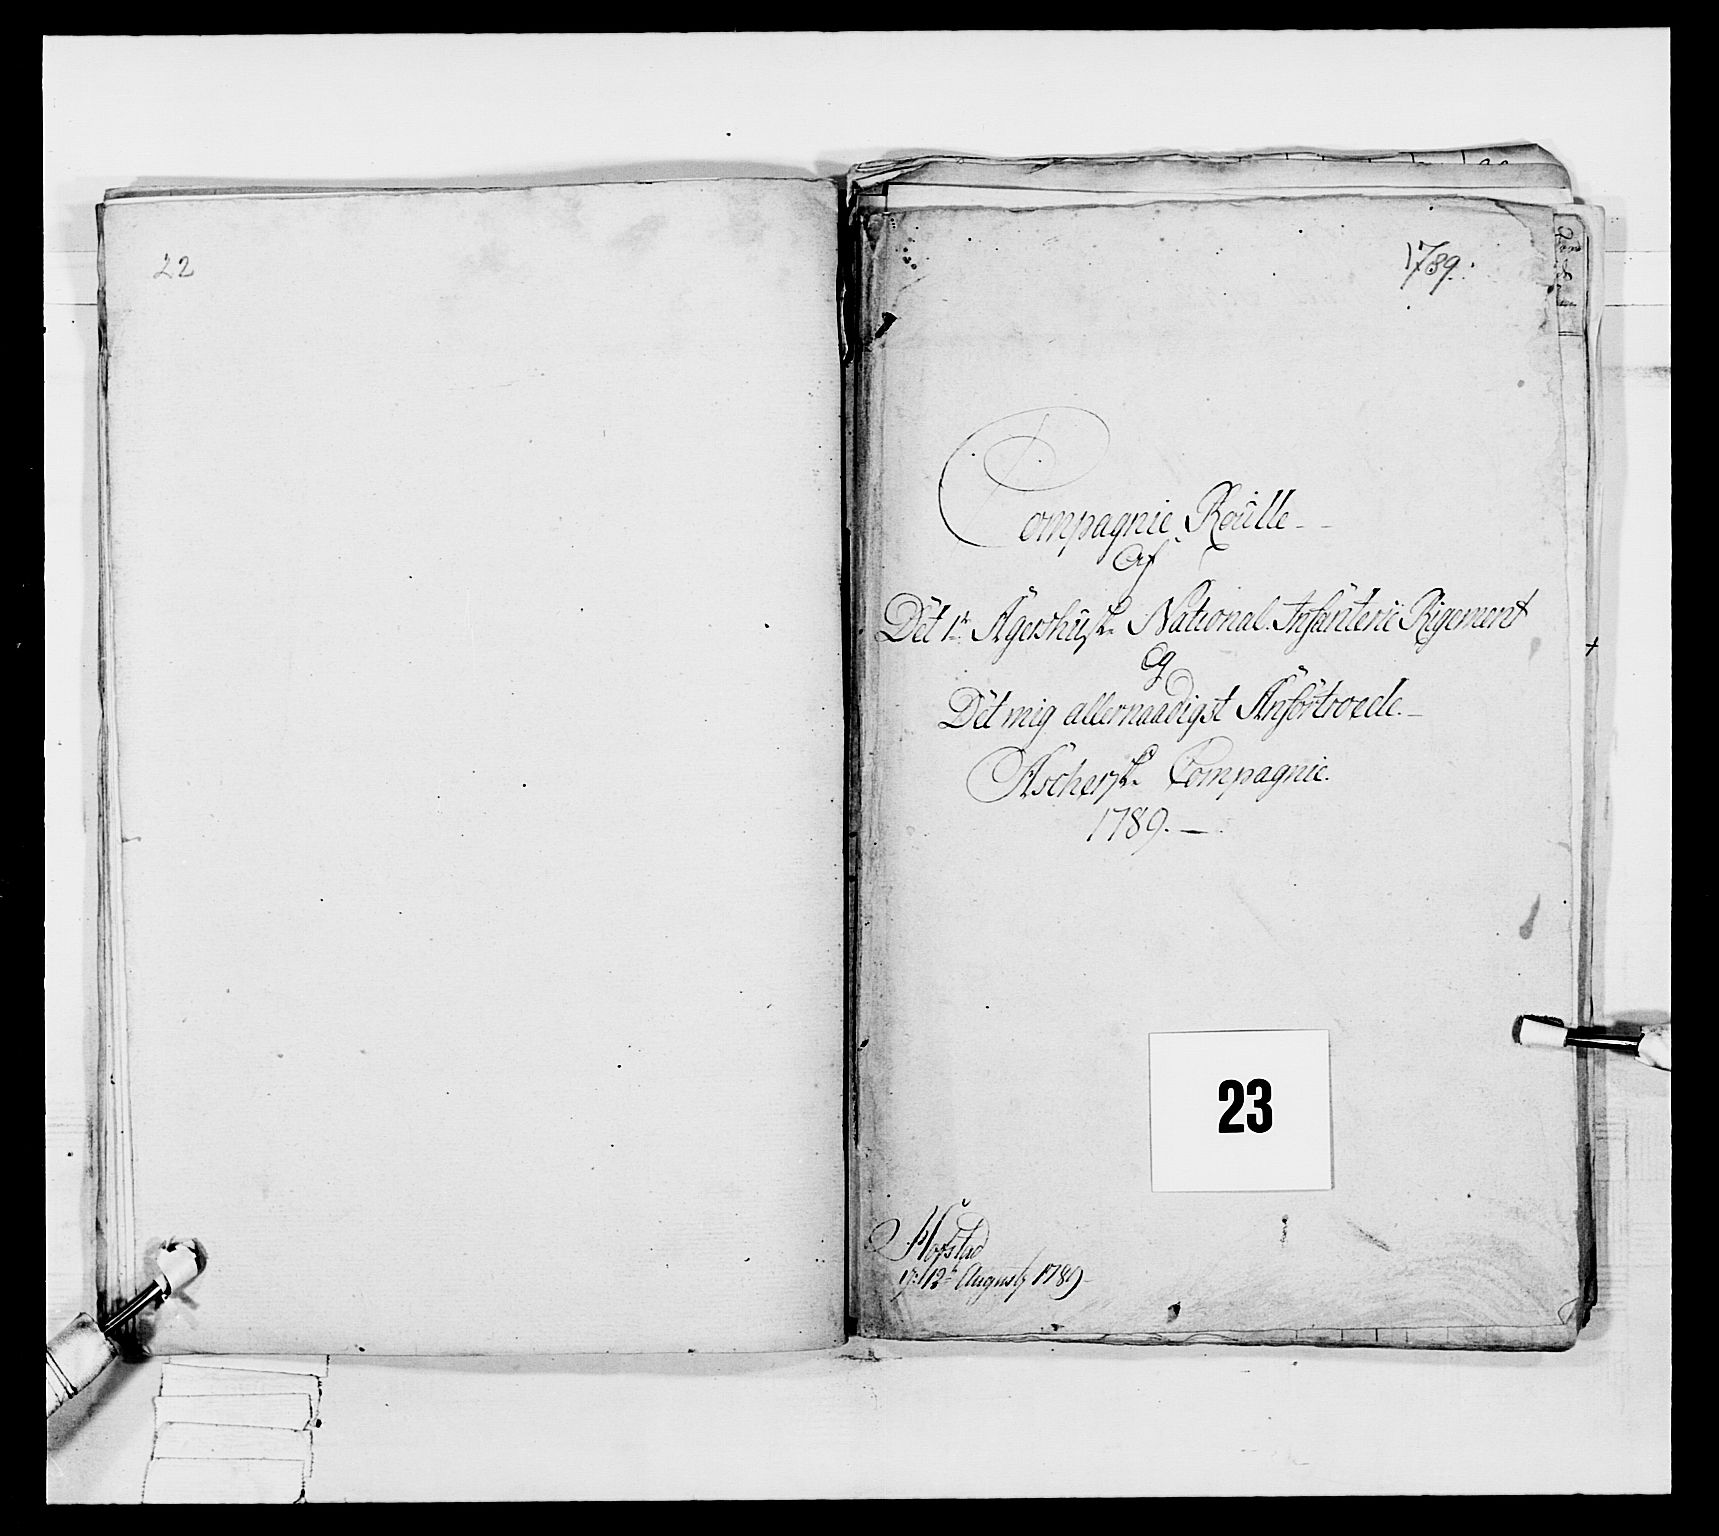 22
1789.
Compagnie Roulle
af
Det 1te Agershusk. National Infanterie Rigement
og
Det mig allernaadigst Anfortroede
Ascherske Compagnie.
1789.
23
Hofstad
12te August 1789